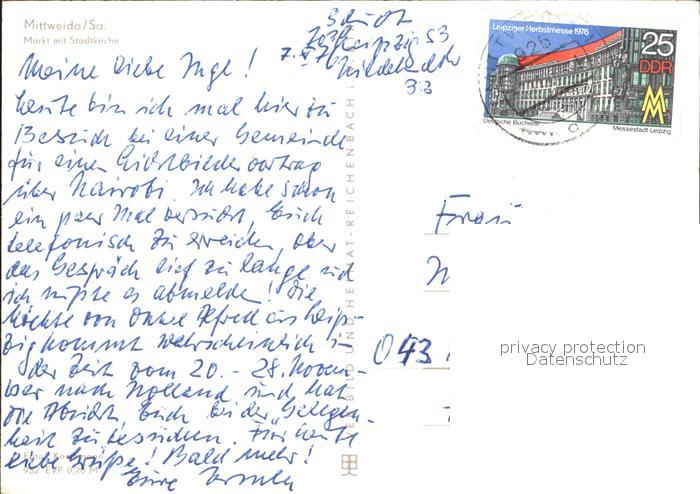 Mittweida/Sa.
Markt mit Stadtkirche
Leipzig 53
33
Meine liebe Inge!
heute bin ich mal hier zu
Besuch bei einer Gemeinde
für einen Lichtbildervortrag
über Nairobi. Ich habe schon
ein paar Mal versucht, Euch
telefonisch zu erreichen, aber
das Gespräch lief zu lange und
ich mußte es abmelden! Die
von Onkel Alfred aus Leip-
zig kommt wahrscheinlich in
der Zeit vom 20. - 28. Novem-
ber nach Holland und hat
die Absicht Euch bei der Gelegen-
heit zu besuchen. Für heute
liebe Grüße! Bald mehr!
Eure Ursula
952 EVP 0,20 M
BILD UND HEIMAT REICHENBACH
Leipziger Herbstmesse 1976
25
DDR
MM
Deutsche Bücherei
Messestadt Leipzig
Frau
043
privacy protection
Datenschutz